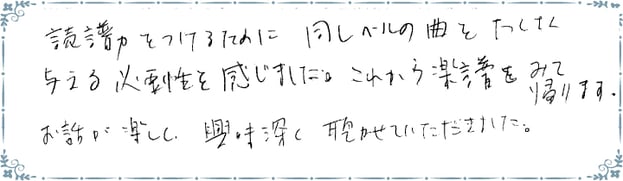 読譜力をつけるために 同レベルの曲をたくさん
与える必要性を感じました。これから楽譜をみて帰ります。
お話が楽しく、興味深く聴かせていただきました。